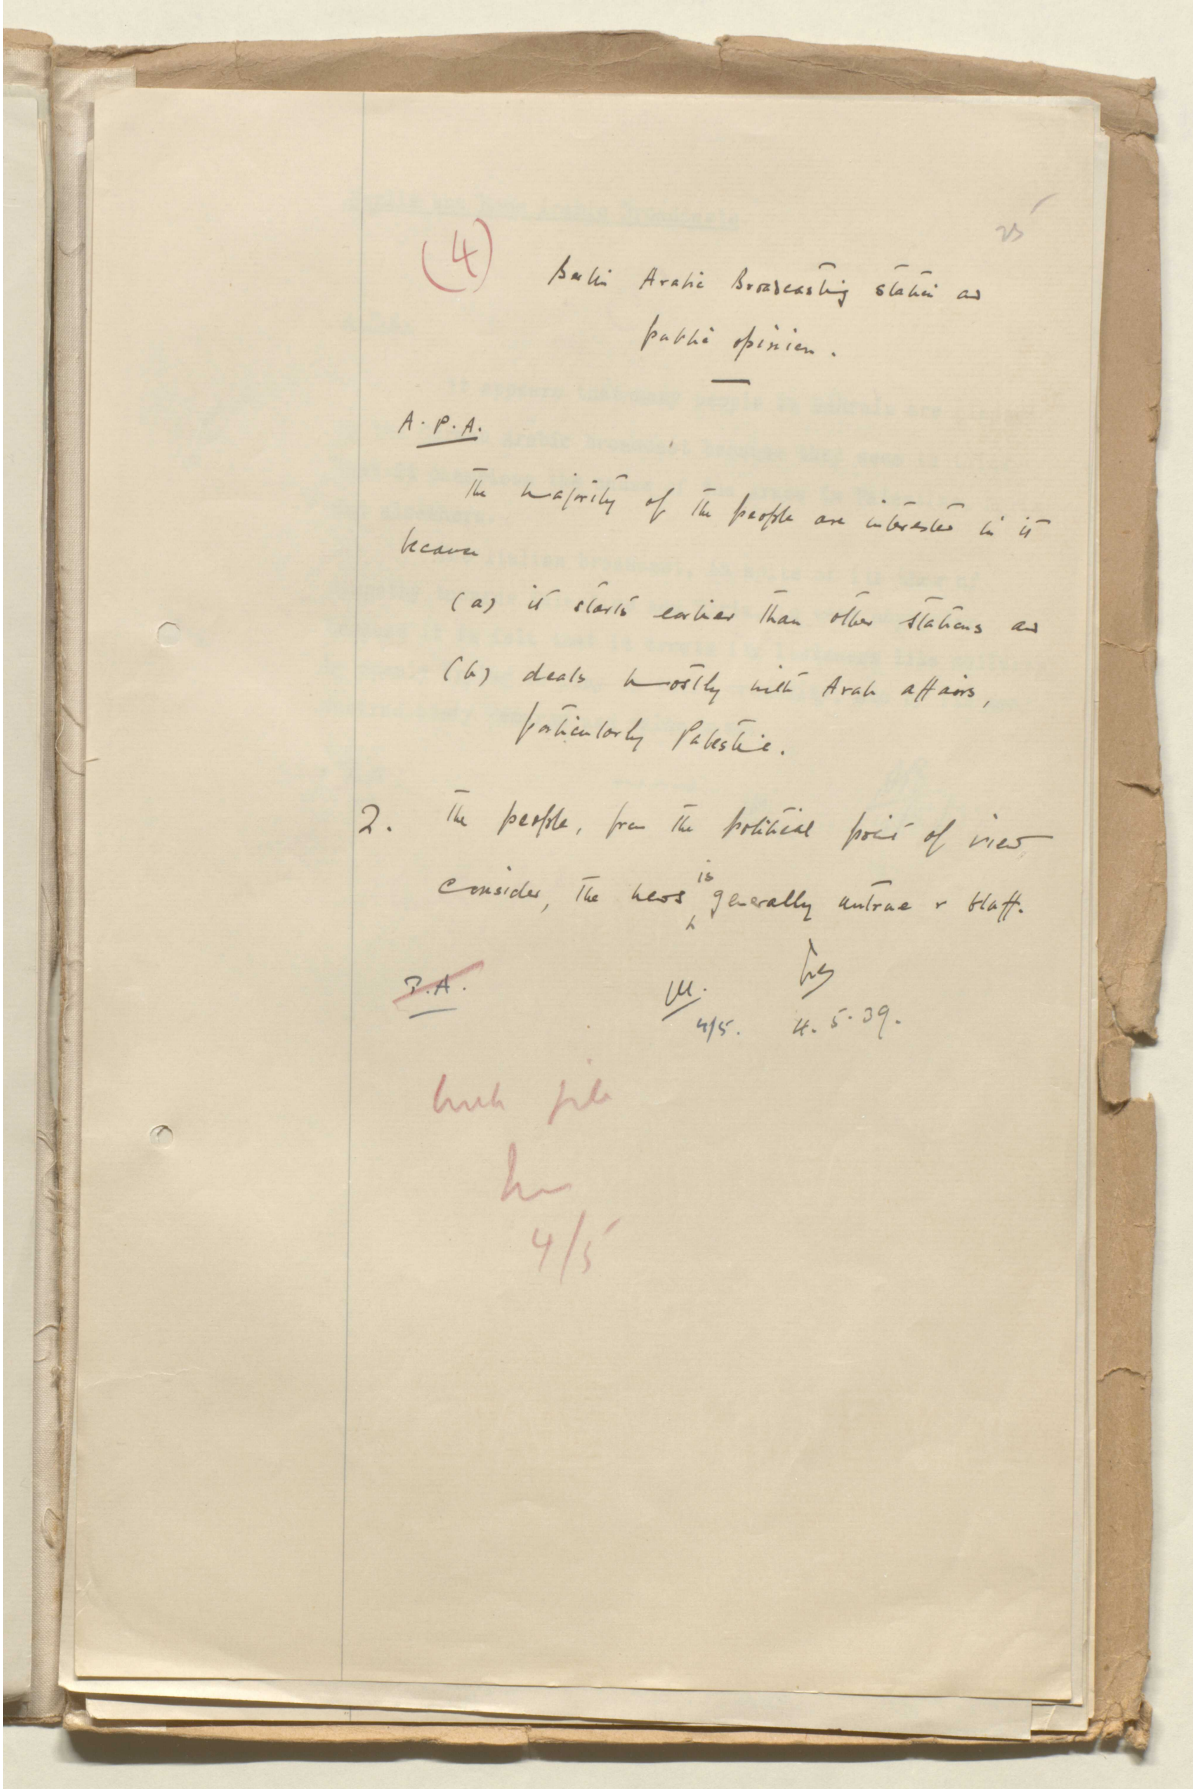 25
(4)
Berlin Arabic Broadcasting station and
public opinion.
A.P.A.
The majority of the people are interested in it
because
(a) it starts earlier than other stations and
(b) deals mostly with Arab affairs,
particularly Palestine.
2. The people, from the political point of view,
consider, the news is generally untrue & bluff.
P.A.
4/5. 4.5.39.
file
4/5